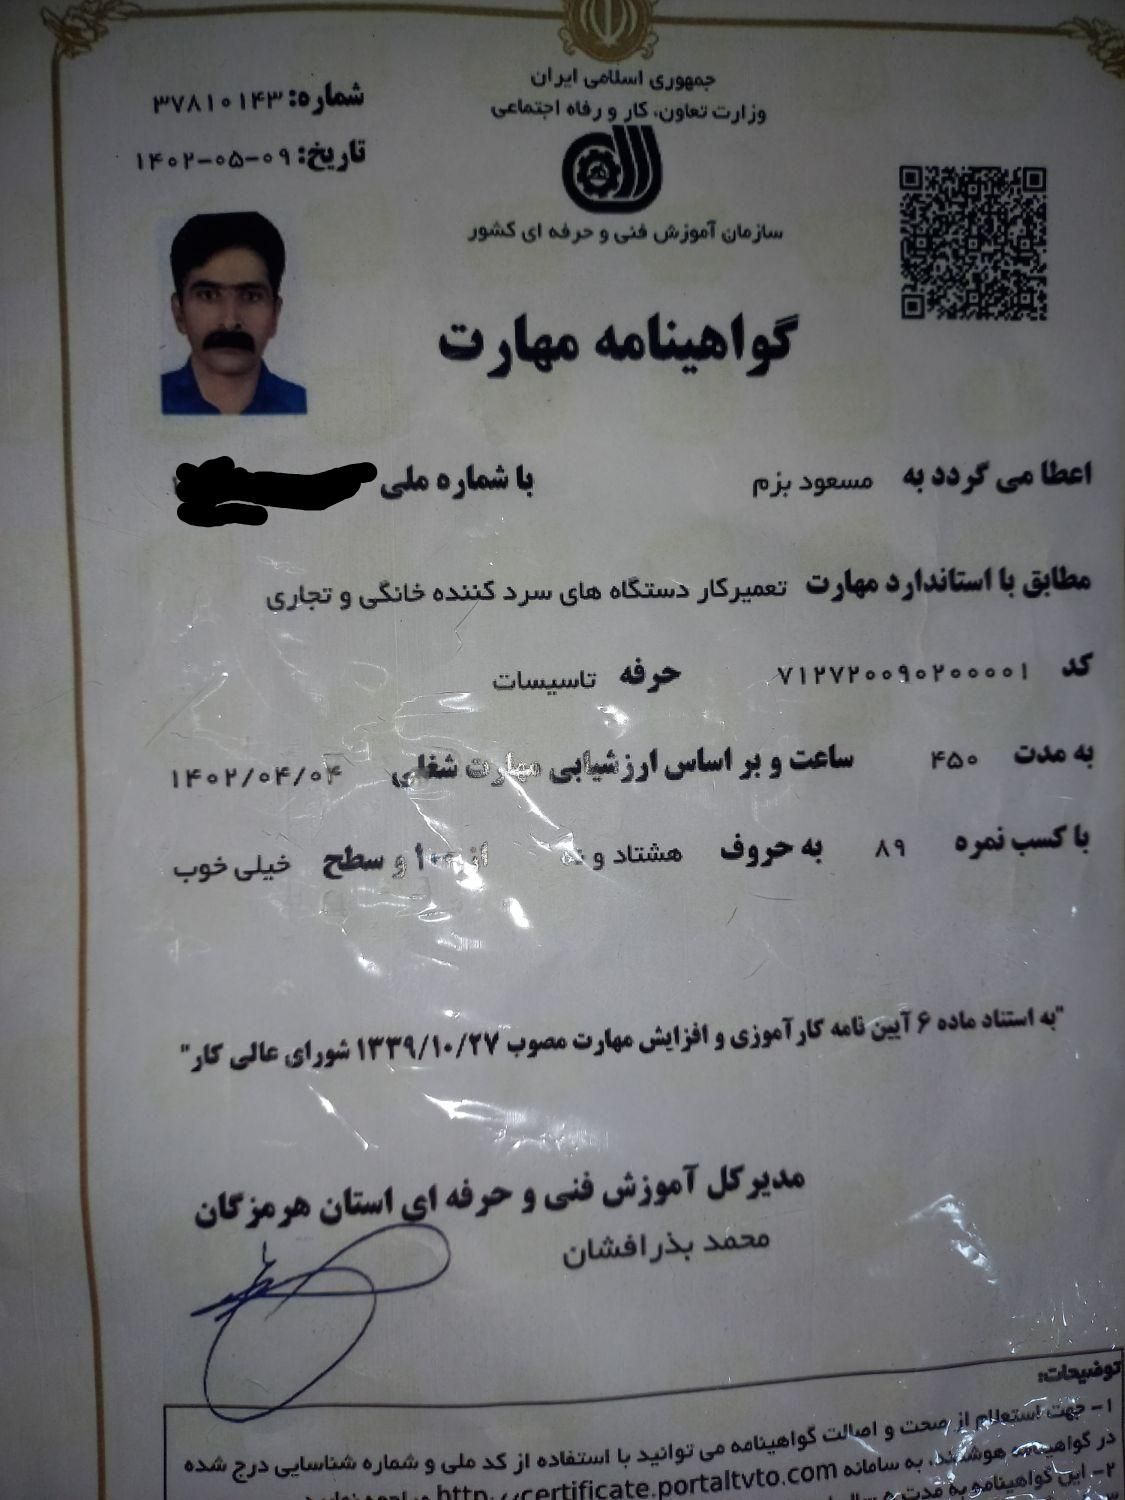 جمهوری اسلامی ایران
وزارت تعاون، کار و رفاه اجتماعی
شماره: ۳۷۸۱۰۱۴۳
تاریخ: ۱۴۰۲-۰۵-۰۹
سازمان آموزش فنی و حرفه ای کشور
گواهینامه مهارت
اعطا می گردد به مسعود بزم با شماره ملی
مطابق با استاندارد مهارت تعمیرکار دستگاه های سرد کننده خانگی و تجاری
کد ۷۱۲۷۲۰۰۹۰۲۰۰۰۰۱ حرفه تاسیسات
به مدت ۴۵۰ ساعت و بر اساس ارزشیابی مهارت شغلی ۱۴۰۲/۰۴/۰۴
با کسب نمره ۸۹ به حروف هشتاد و نه از ۱۰۰ و سطح خیلی خوب
"به استناد ماده ۶ آیین نامه کارآموزی و افزایش مهارت مصوب ۱۳۳۹/۱۰/۲۷ شورای عالی کار"
مدیرکل آموزش فنی و حرفه ای استان هرمزگان
محمد بذرافشان
توضیحات:
۱- جهت استعلام از صحت و اصالت گواهینامه می توانید با استفاده از کد ملی و شماره شناسایی درج شده
در گواهینامه هوشمند، به سامانه certificate.portaltvto.com
۲- این گواهینامه به مدت